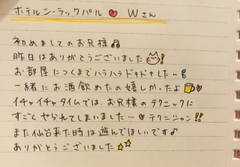 ホテルン・ラックパル♥ Wさん
初めましてのお兄様♪
昨日はありがとうございました!!
お部屋につくまでハラハラドキドキした…
一緒にお酒飲めたの嬉しかったよ♥
イチャイチャタイムでは、お兄様のテクニックに
すごくやられてしまいました…♥テクニシャン!!
また仙台来た時は遊んでほしいです♪
ありがとうございました☆☆